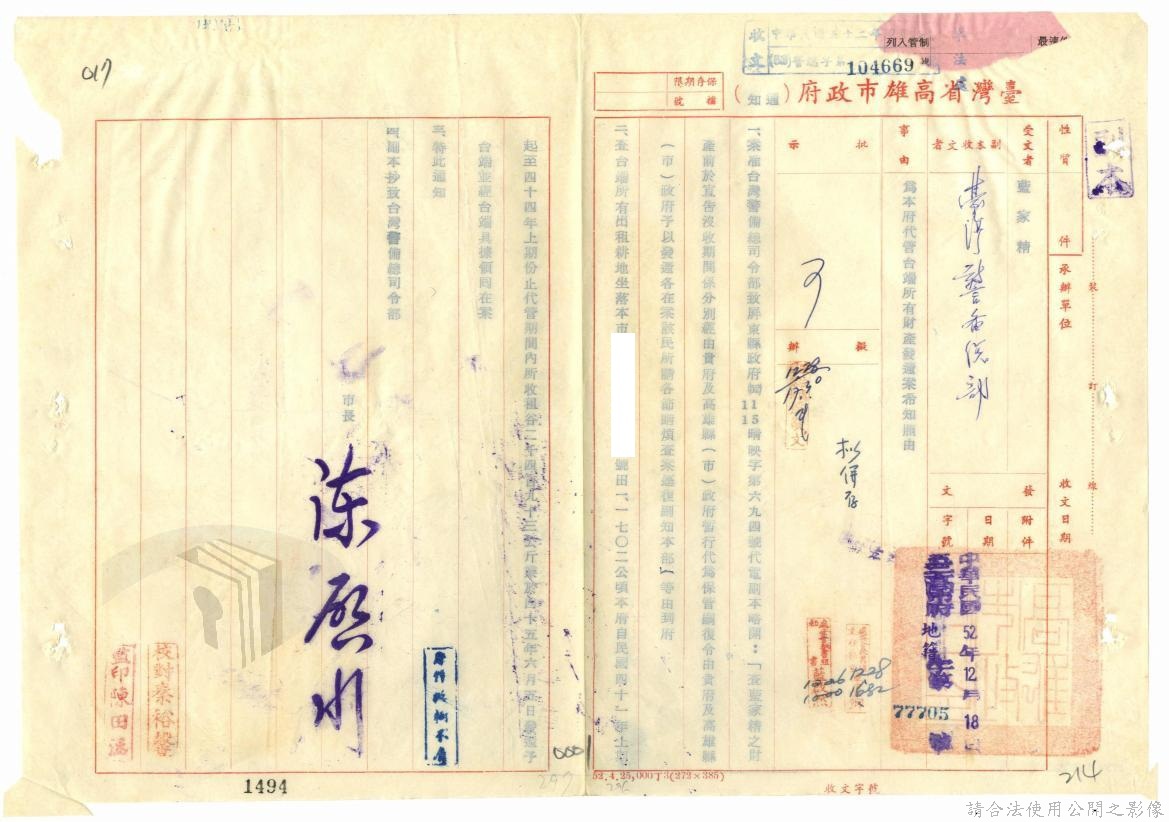 副本
最速件
列入管制
收文
104669
號
臺灣省高雄市政府（通知）
保存期限
檔號
性質
件
承辦單位
收文日期
裝
訂
線
受文者
藍家精
副本收文者
臺灣警備總部
發文
附件
日期
字號
中華民國52年12月18日
地籍
77705
號
事由
為本府代管台端所有財產發還案希知照由
批示
可
擬辦
擬併存
1228
1226
1228
1682
一、案准台灣警備總司令部致屏東縣政府(52)11 15晴映字第六九四號代電副本略開：「查藍家精之財
產前於宣告沒收期間係分別經由貴府及高雄縣（市）政府暫行代為保管嗣復令由貴府及高雄縣
（市）政府予以發還各在案該民所請各節請煩查案逕復副知本部」等由到府
二、查台端所有出租耕地坐落本市
號田一、一七〇二公頃本府自民國四十一年上期
起至四十四年上期份止代管期間內所收租谷二千四百九十三公斤業於四十五年六月
日發還予
台端並經台端具據領回在案
三、特此通知
四、副本抄致台灣警備總司令部
市長
陳啟川
校對秦裕馨
監印陳田
017
0001
297
296
214
1494
52.4.25,000丁3(272×385)
收文字號
請合法使用公開之影像